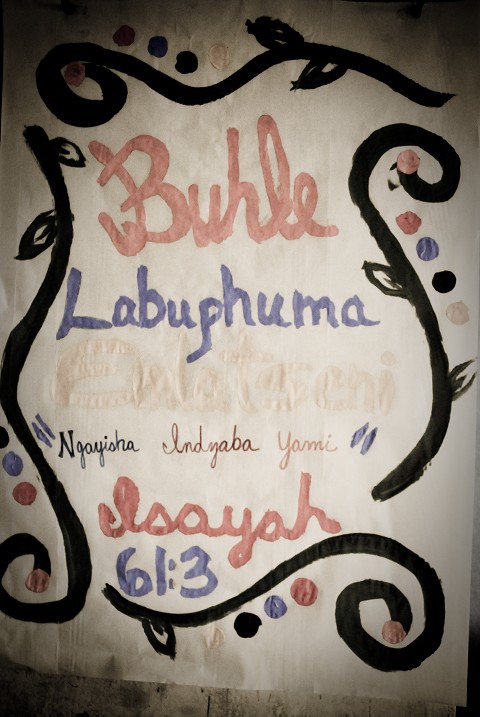 Buhle
Labuphuma
Emlotseni
"Ngayisha Indzaba Yami"
Isayah
61:3